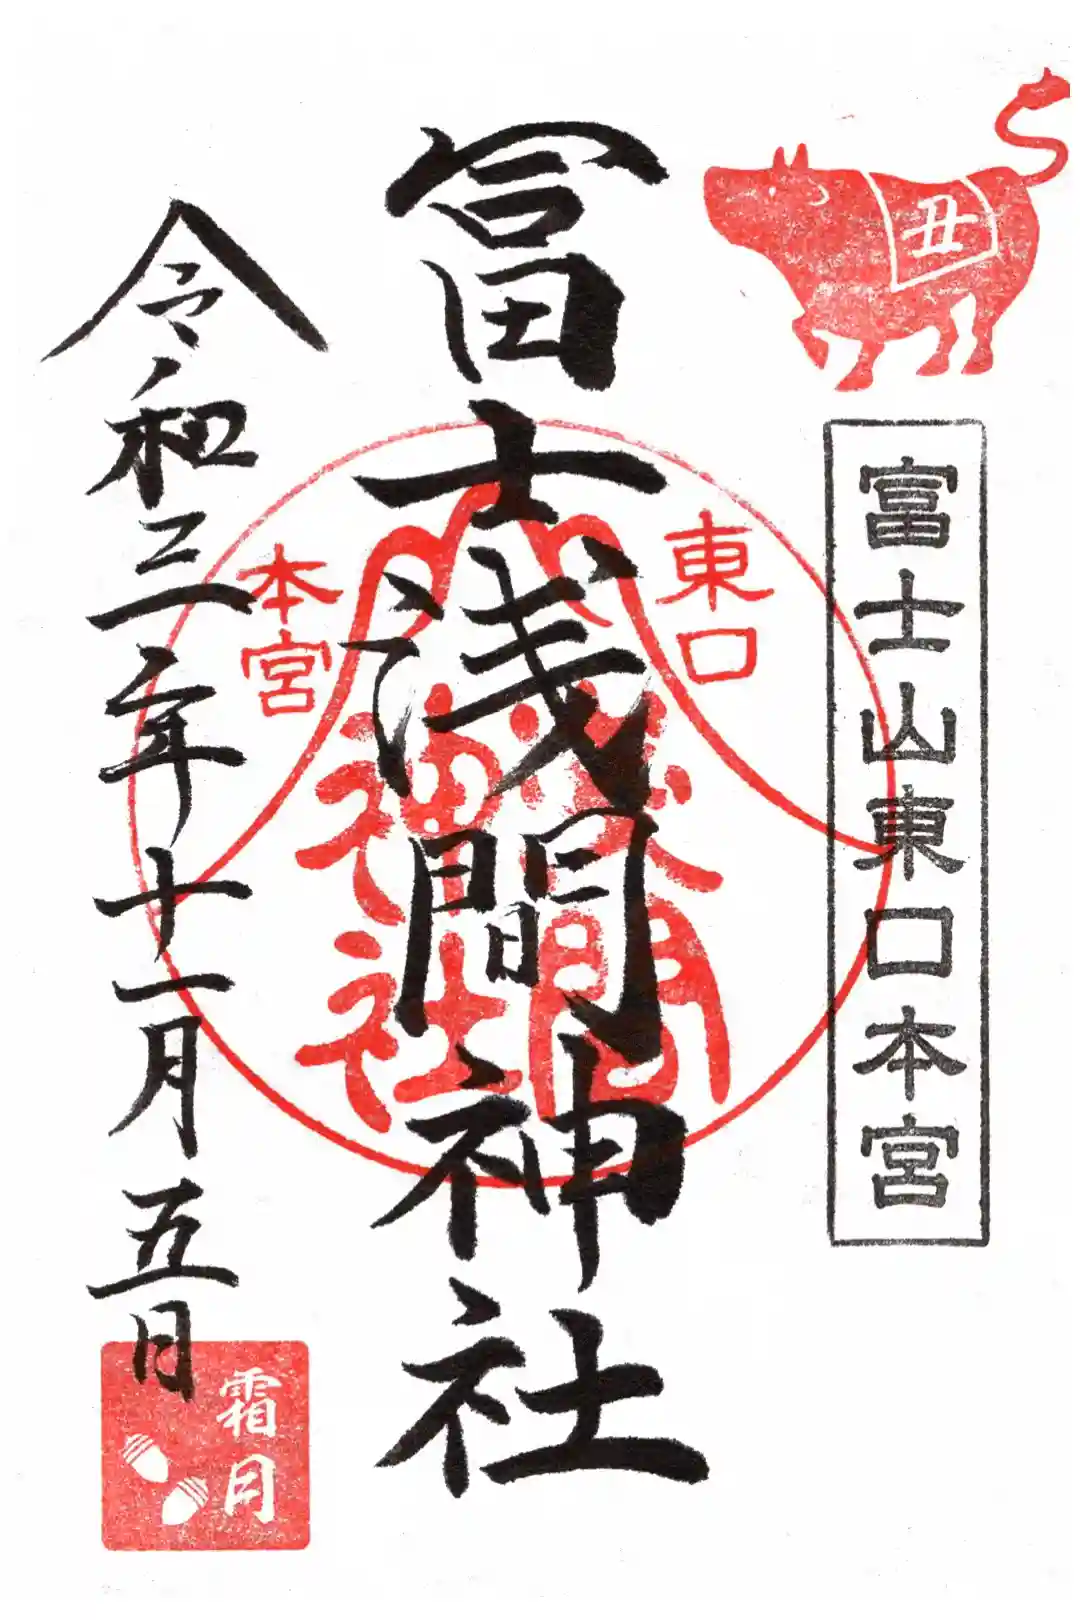 丑
富士山東口本宮
東口
冨士浅間神社
浅間
神社
本宮
令和三年十一月五日
霜月